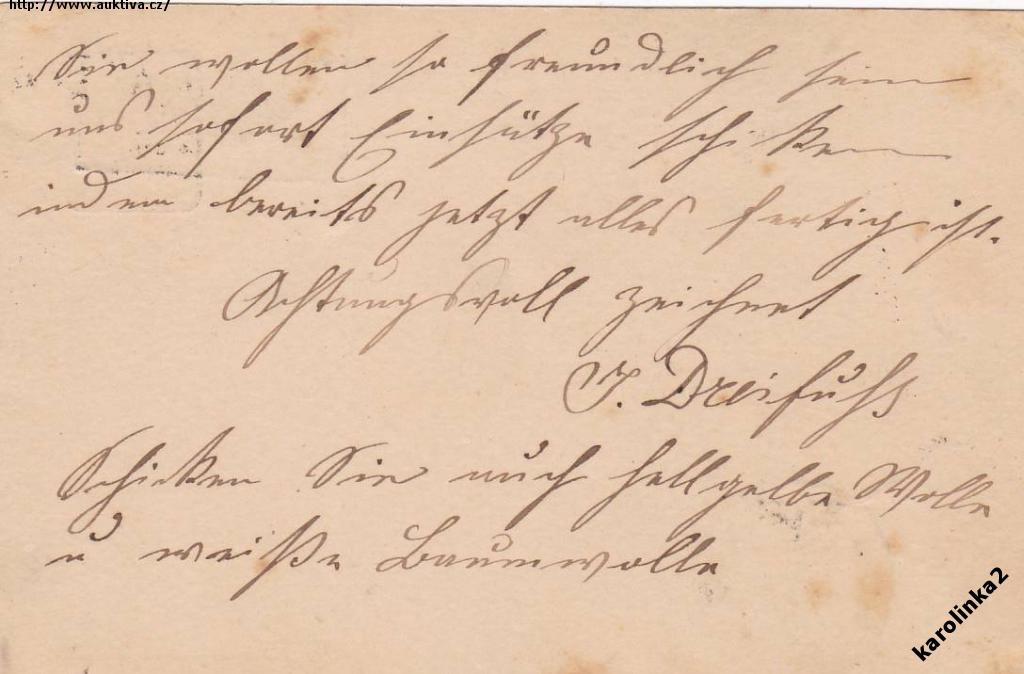 http://www.auktiva.cz/
Sie wollen so freundlich sein
uns sofort Einsätze schicken
indem bereits jetzt alles fertig ist.
Achtungsvoll zeichnet
J. Dreifuhs
Schicken Sie auch hellgelbe Wolle
u weiße Baumwolle
karolinka2